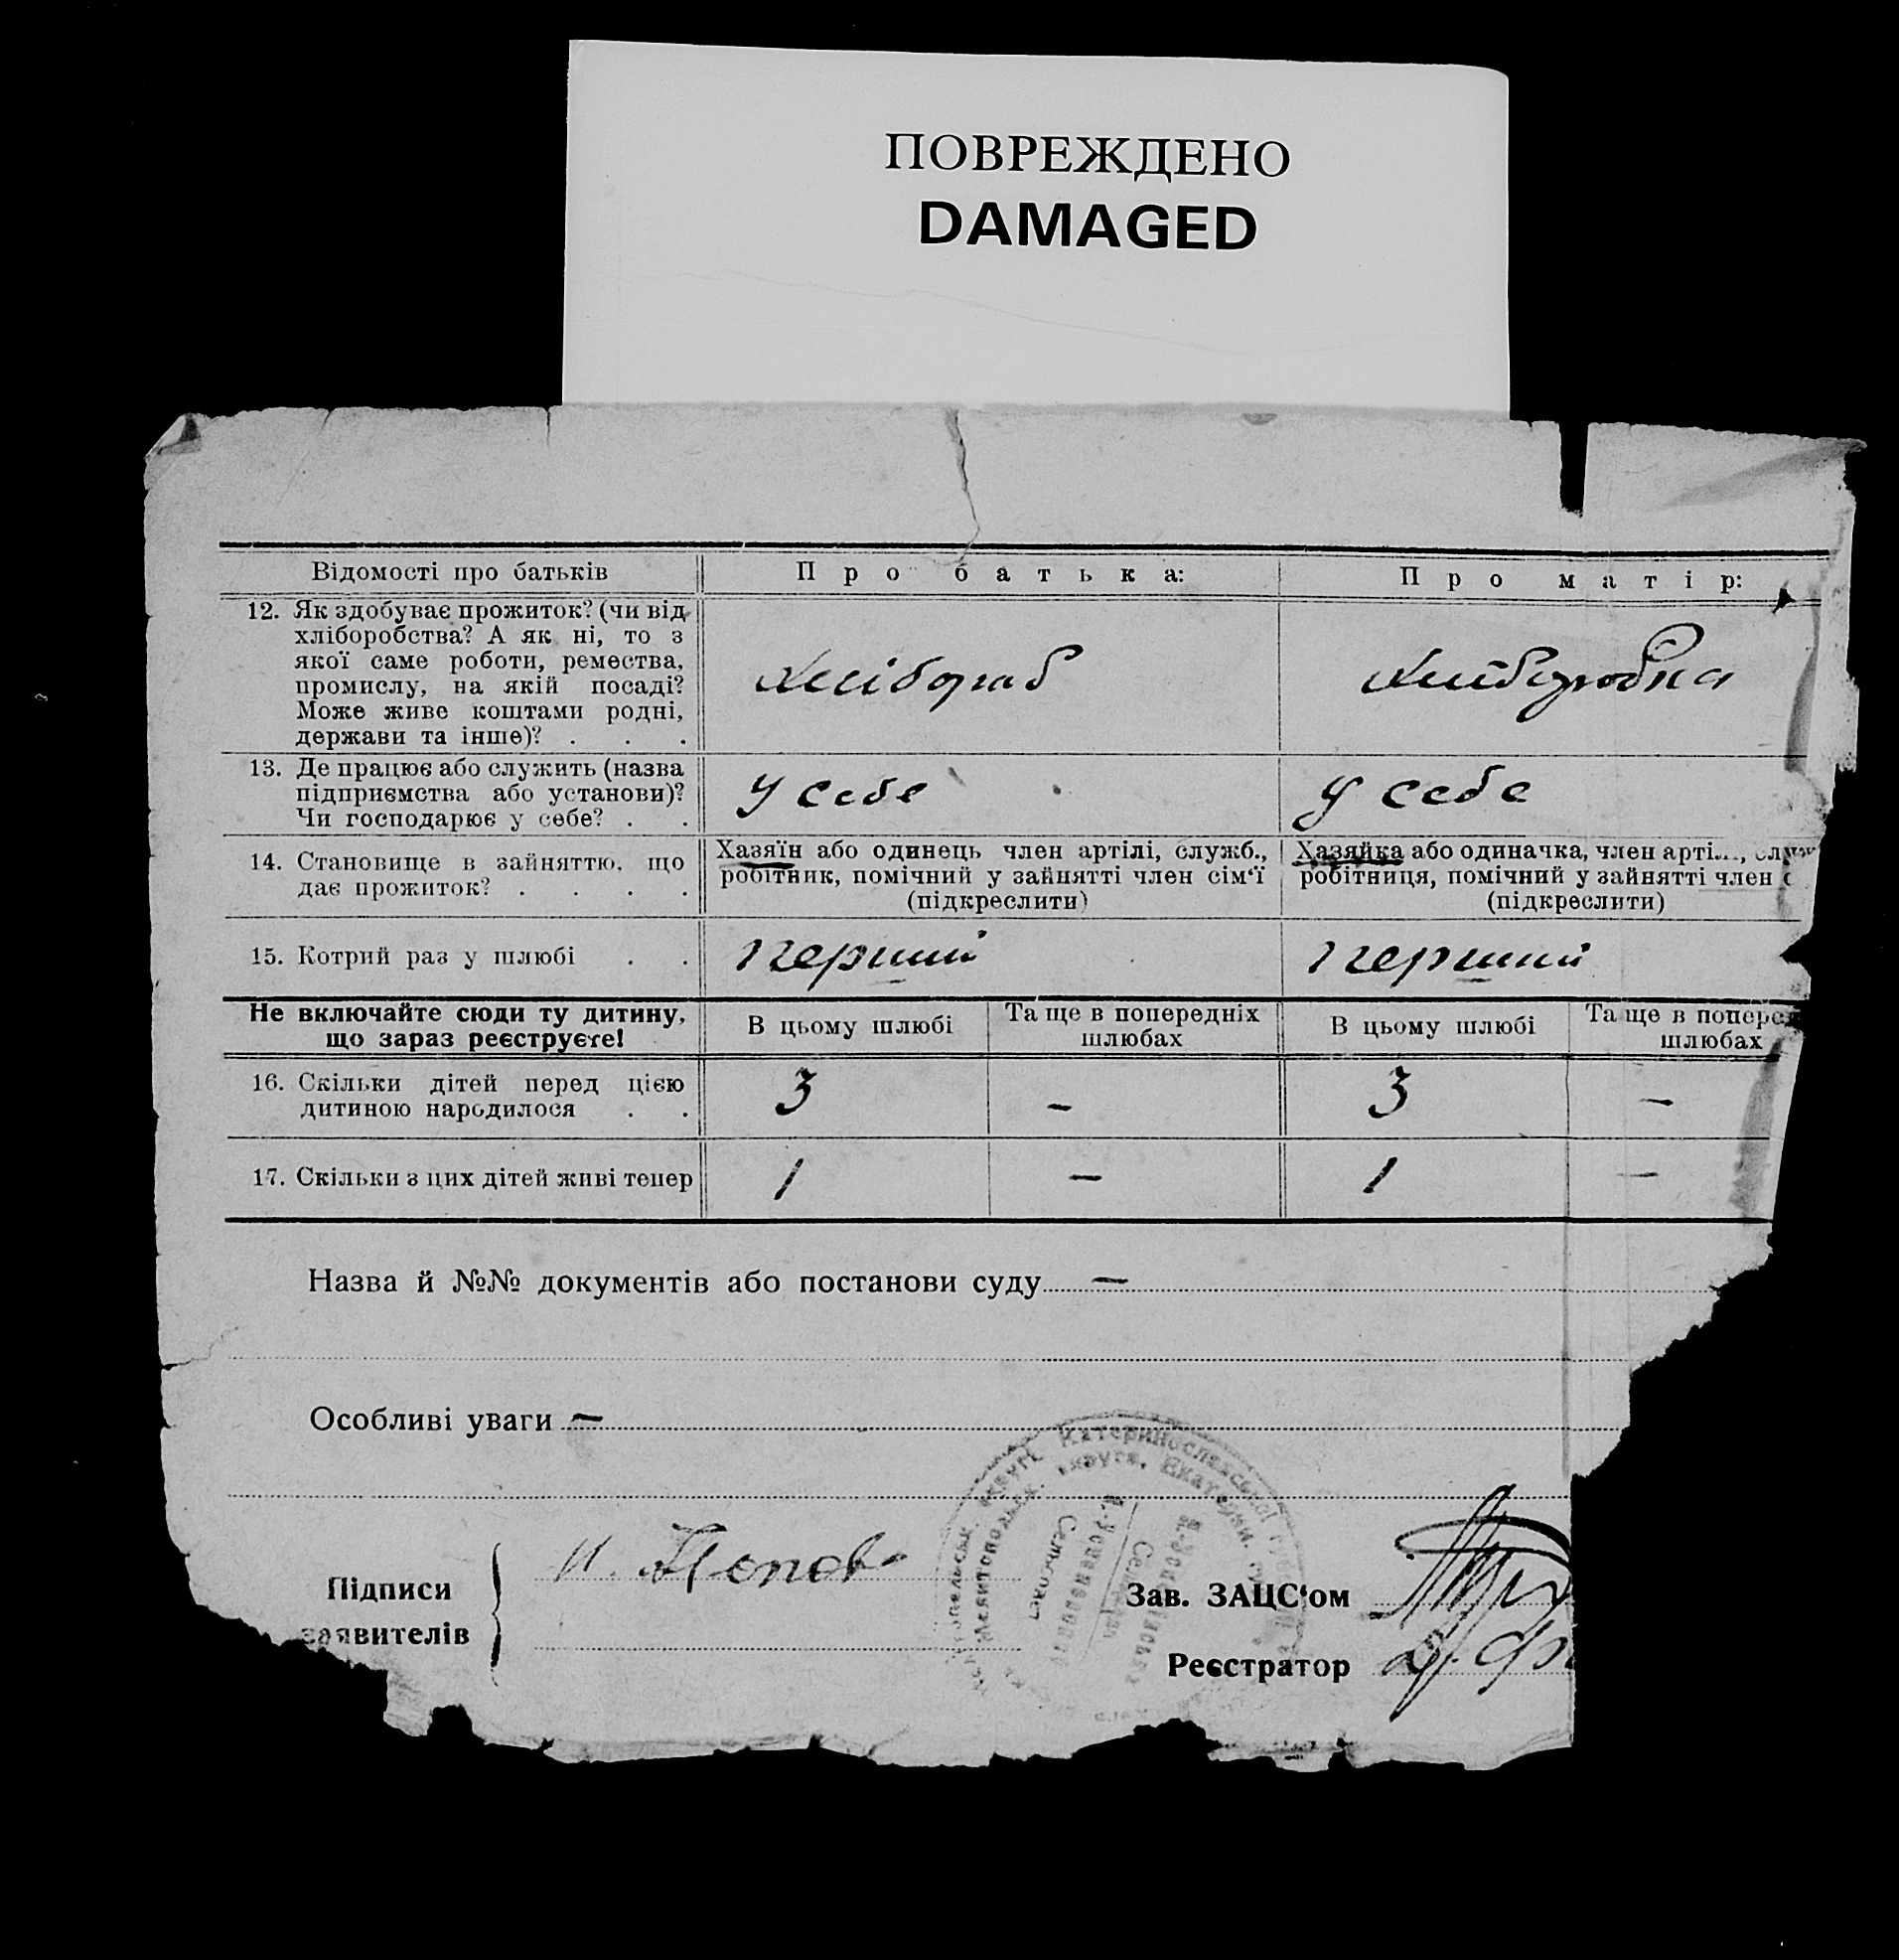 ПОВРЕЖДЕНО
DAMAGED
Відомості про батьків
Про батька:
Про матір:
12. Як здобуває прожиток? (чи від
хліборобства? А як ні, то з
якої саме роботи, ремества,
промислу, на якій посаді?
Може живе коштами родні,
держави та інше)? . . .
хлібораб
хлібаробка
13. Де працює або служить (назва
підприємства або установи)?
Чи господарює у себе? . .
у себе
у себе
14. Становище в зайняттю, що
дає прожиток? . . . .
Хазяїн або одинець член артілі, служб.,
робітник, помічний у зайнятті член сім‘ї
(підкреслити)
Хазяйка або одиначка, член артіл
робітниця, помічний у зайнятті член
(підкреслити)
15. Котрий раз у шлюбі . .
перший
перший
Не включайте сюди ту дитину,
що зараз реєструєте!
В цьому шлюбі
Та ще в попередніх
шлюбах
В цьому шлюбі
Та ще в поперед
шлюбах
16. Скільки дітей перед цією
дитиною народилося . .
3
–
3
–
17. Скільки з цих дітей живі тепер
1
–
1
–
Назва й №№ документів або постанови суду –
Особливі уваги –
Підписи
заявителів
И. Попов
Зав. ЗАЦС‘ом
Реєстратор
Катеринославської
Мелитопольск. округа, Екатерин.
Сельсовет